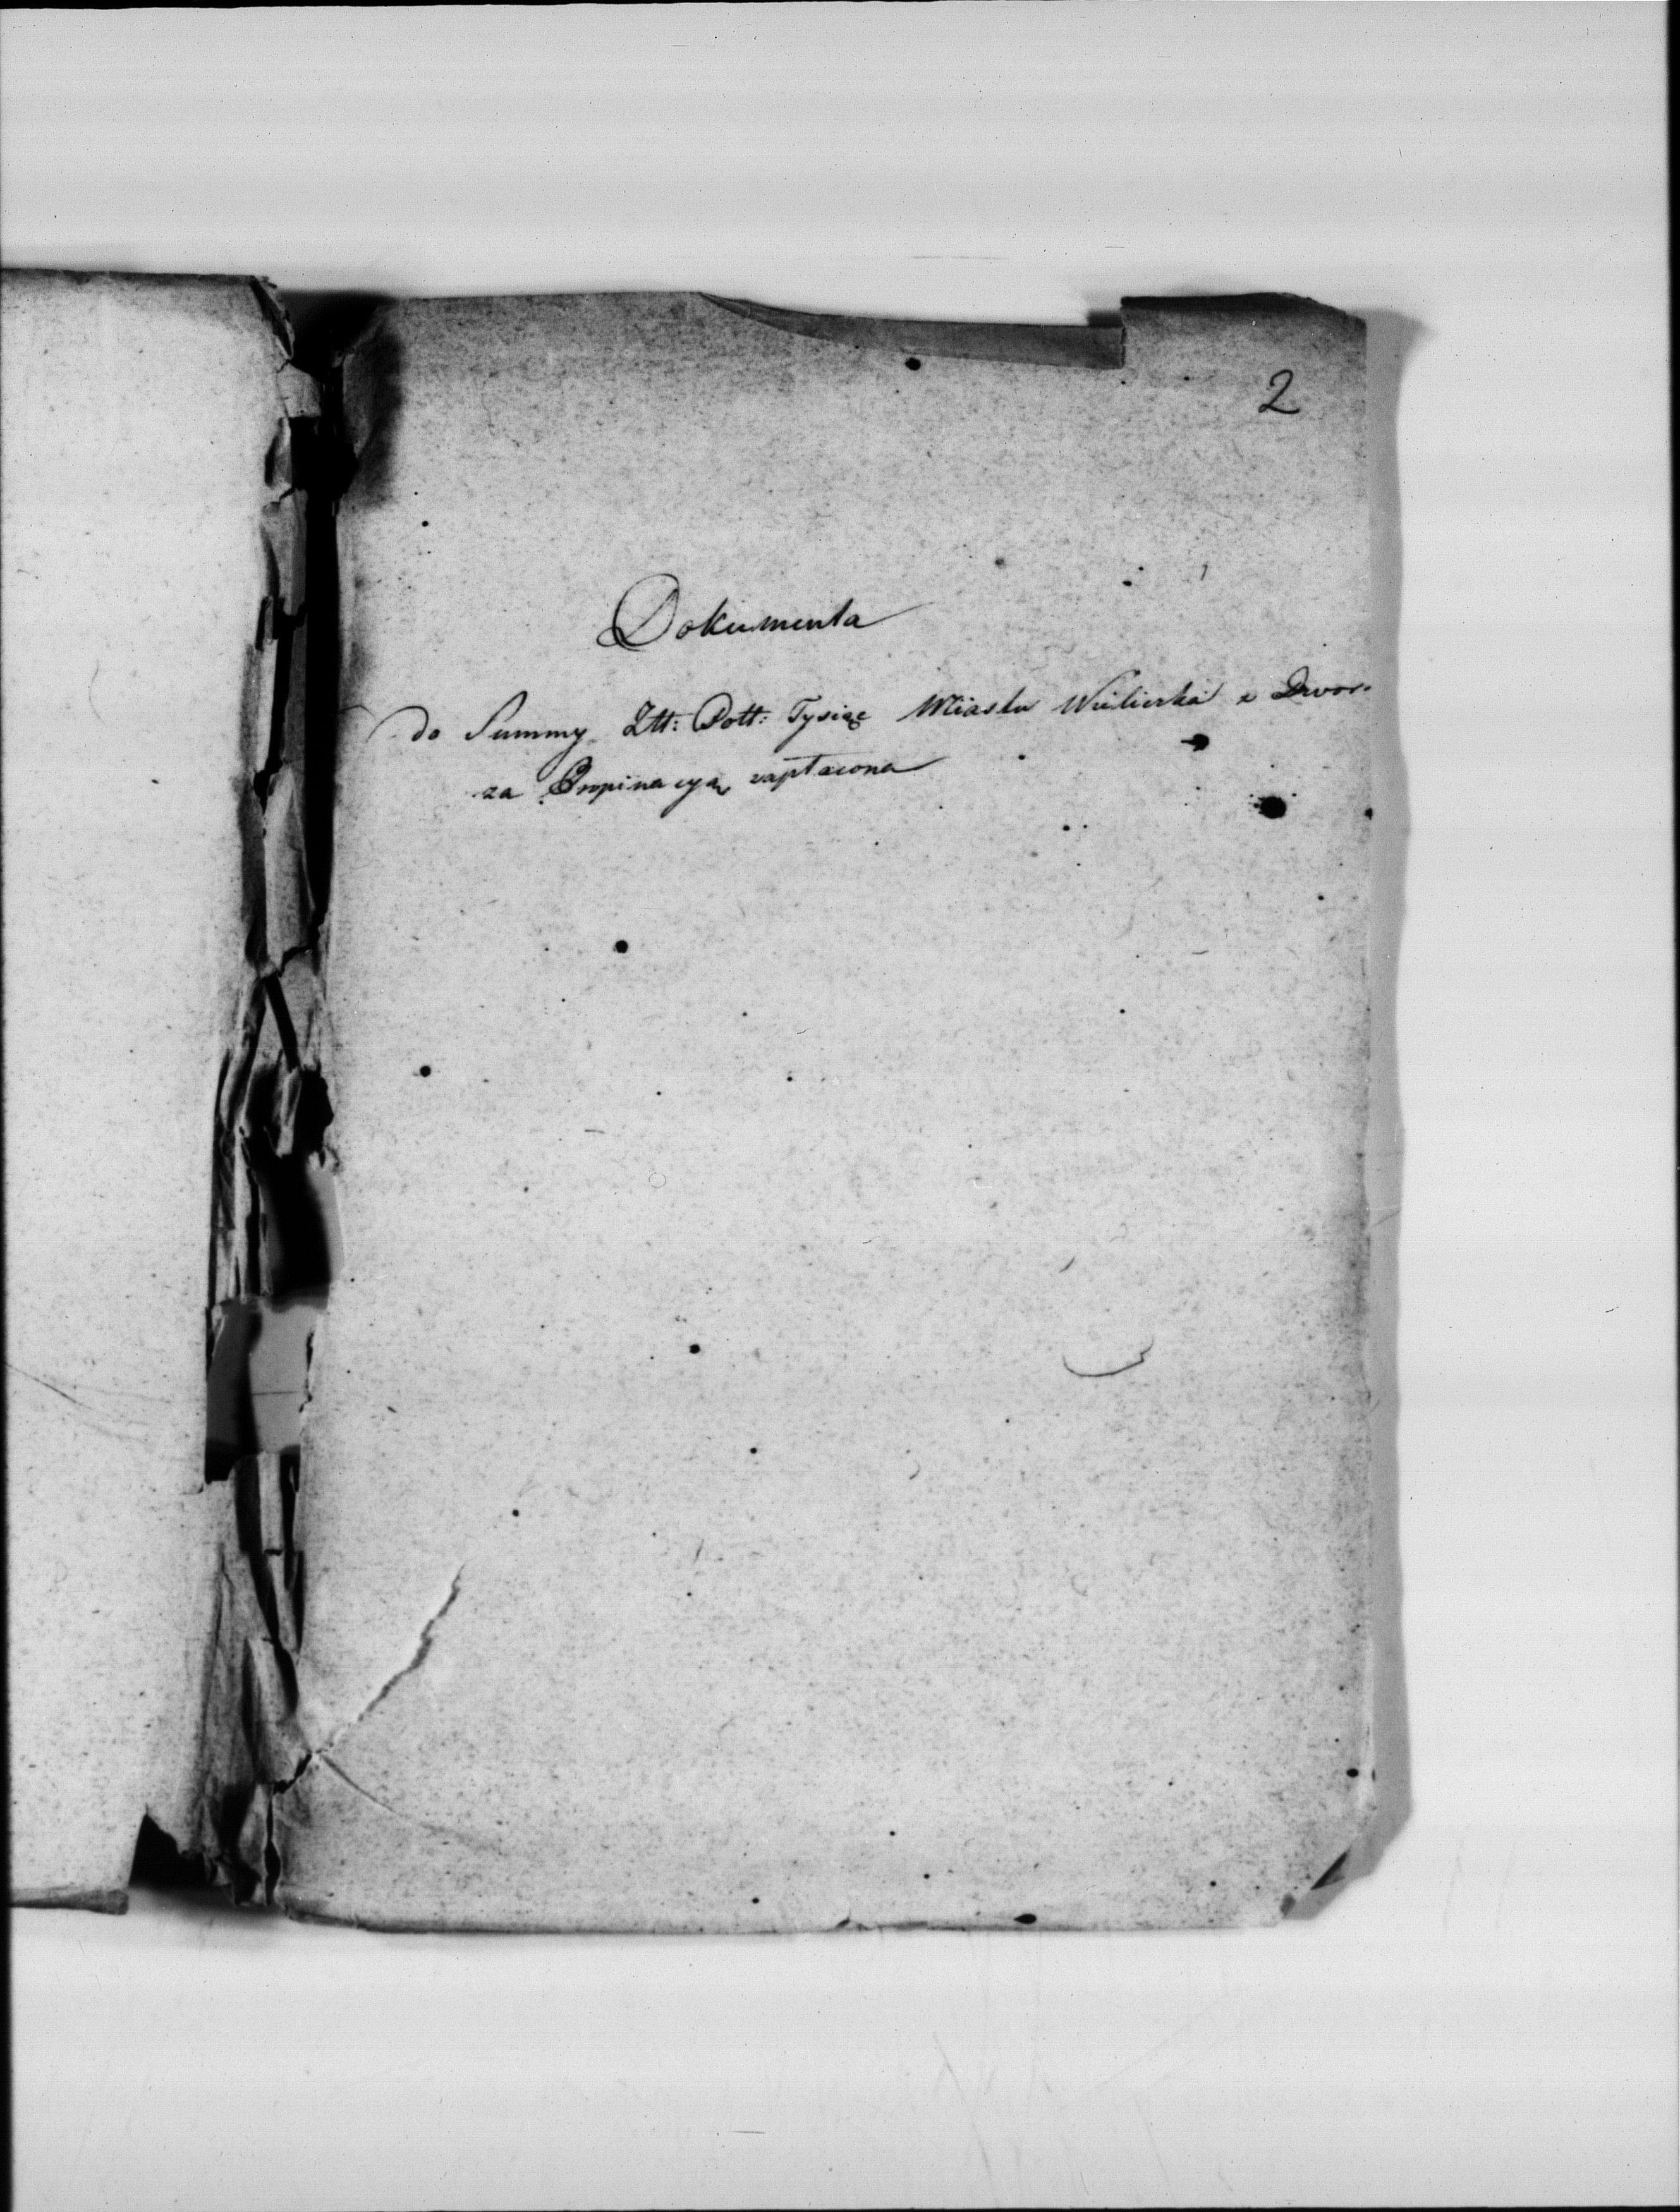 2
Dokumenta
do Summy Ztt: Pott: Tysiąc Miastu Wieliczka z Dwor
za Propinacyą zapłacona